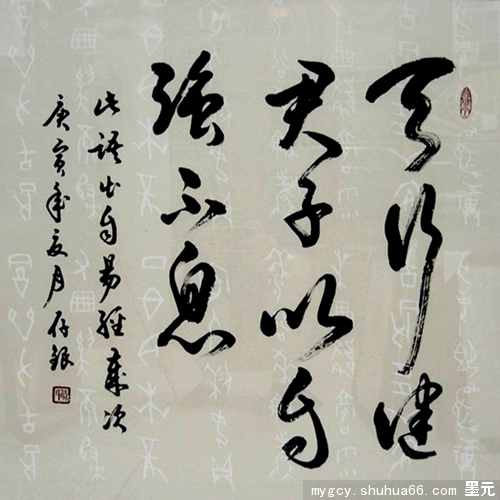 天行健
君子以自
強不息
此語出自易經歲次
庚寅年夏月存銀
mygcy.shuhua66.com 墨元